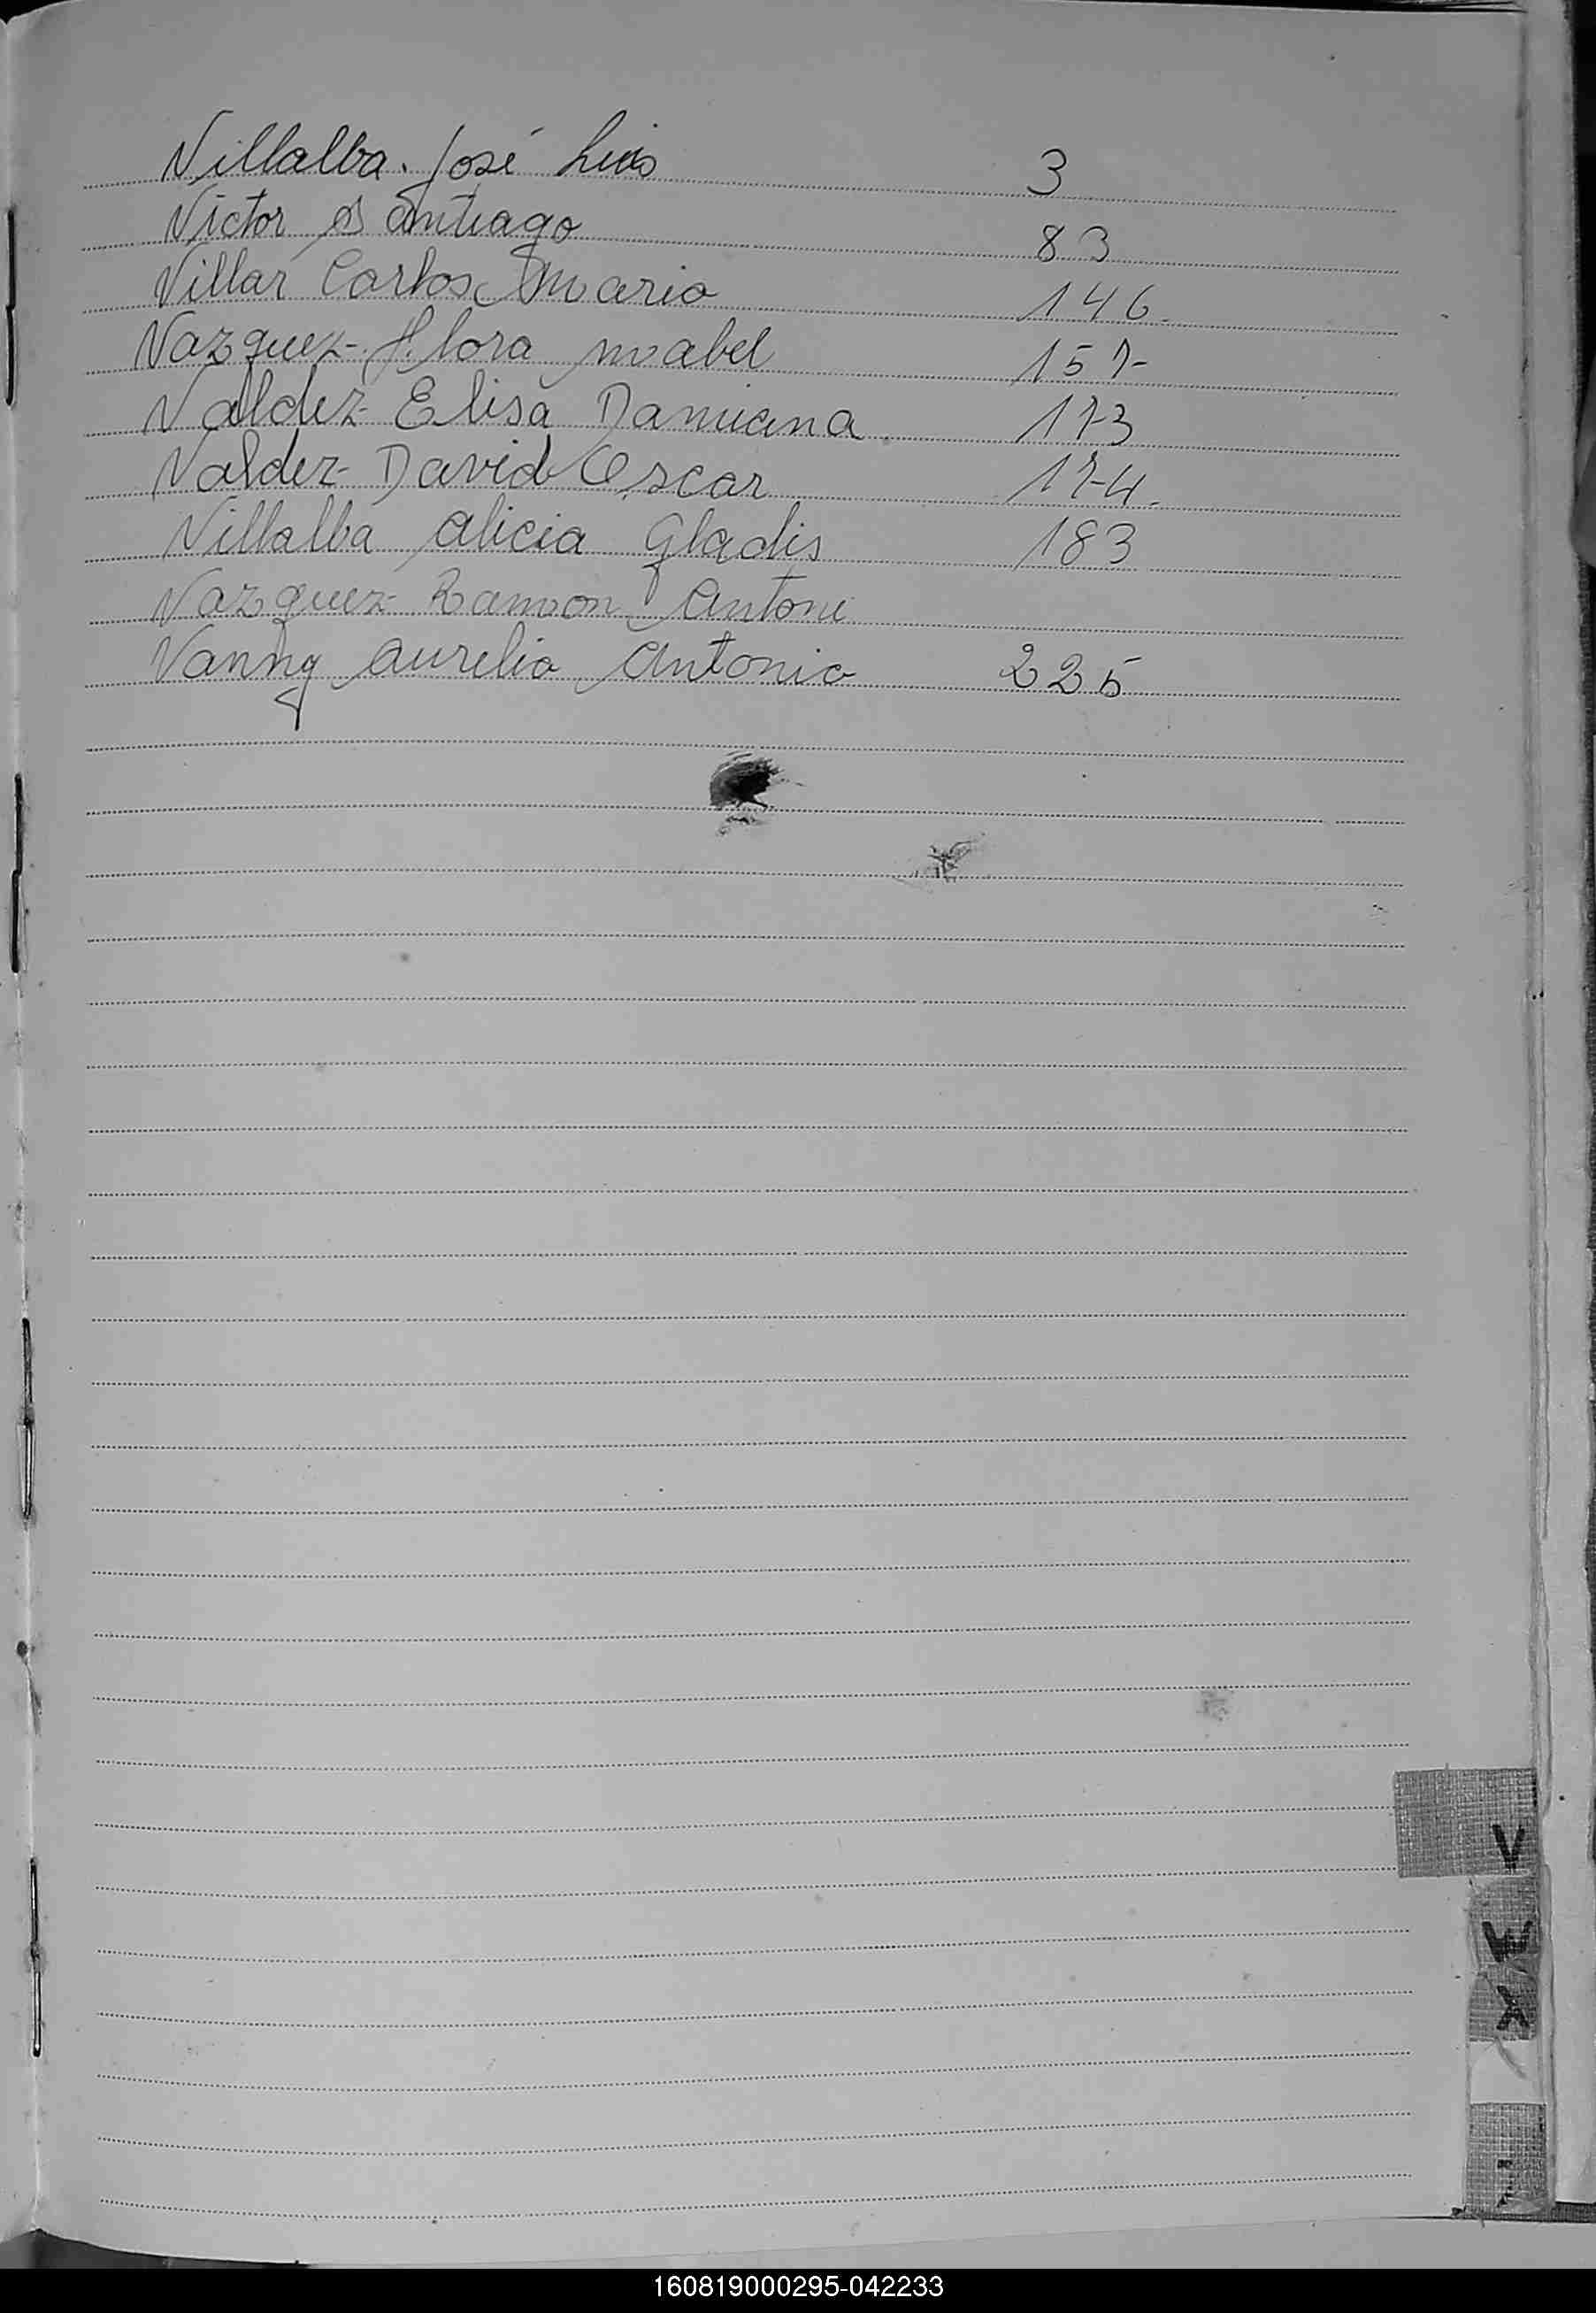 Villalba. José Luis 3
Victor Santiago 83
Villar Carlos Mario 146.
Vazquez Flora Mabel 157
Valdez Elisa Damiana. 173
Valdez David Oscar 174.
Villalba Alicia Gladis 183
Vazquez Ramon Antoni
Vanny Aurelio Antonio 225
V
W
X
160819000295-042233